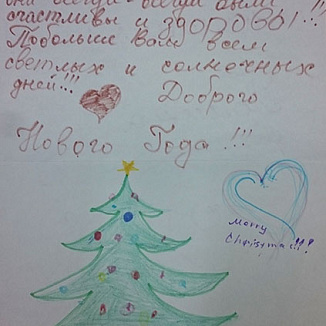 они всегда всегда были
счастливы и здоровы!!!
Побольше Вам всем
светлых и солнечных
дней!!! Доброго
Нового Года!!!
Merry
Christmas!!!